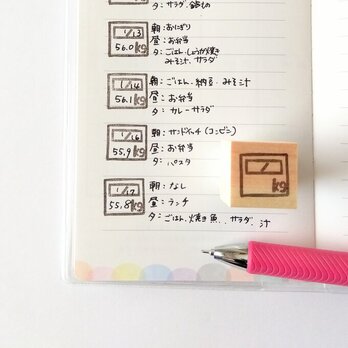 夕：サラダ、鍋もの
1/13
56.0 kg
朝：おにぎり
昼：お弁当
夕：ごはん、しょうが焼き
みそ汁、サラダ
1/14
56.1 kg
朝：ごはん、納豆、みそ汁
昼：お弁当
夕：カレーサラダ
1/16
55.9 kg
朝：サンドイッチ（コンビニ）
昼：お弁当
夕：パスタ
1/17
55.8 kg
朝：なし
昼：ランチ
夕：ごはん、焼き魚、サラダ、汁
kg